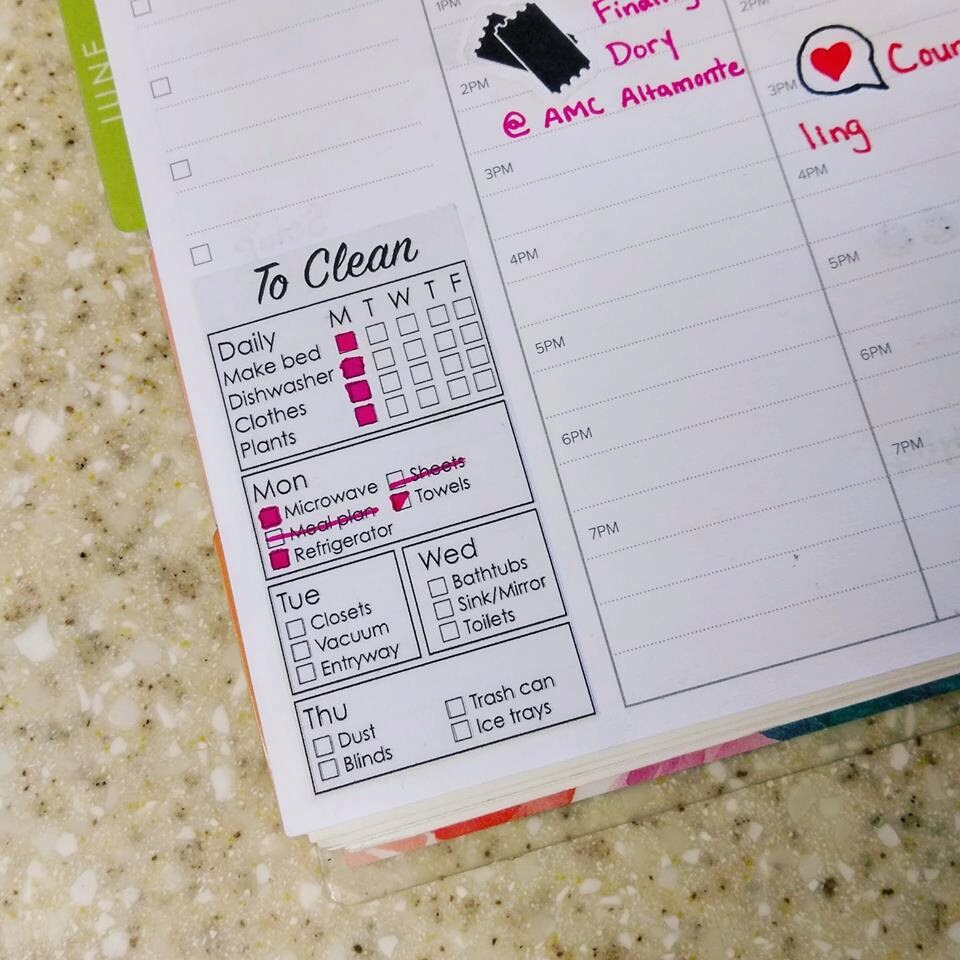 JUNE
1PM
Finding
Dory
2PM
@ AMC Altamonte
3PM
4PM
5PM
6PM
7PM
2PM
3PM
Coun
ling
4PM
5PM
6PM
7PM
To Clean
M T W T F
Daily
Make bed
Dishwasher
Clothes
Plants
Mon
Microwave
Sheets
Meal plan
Towels
Refrigerator
Tue
Closets
Vacuum
Entryway
Wed
Bathtubs
Sink/Mirror
Toilets
Thu
Dust
Blinds
Trash can
Ice trays